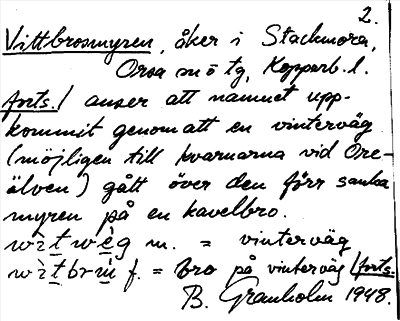 2.
Vittbrosmyren, åker i Stackmora,
Orsa sn ö tg, Kopparb. l.
forts./ anser att namnet upp-
kommit genom att en vinterväg
(möjligen till kvarnarna vid Ore-
älven) gått över den förr sanka
myren på en kavelbro.
wìt wèg m. = vinterväg
wìtbrɯ̀ f. = bro på vinterväg /forts.
B. Granholm 1948.